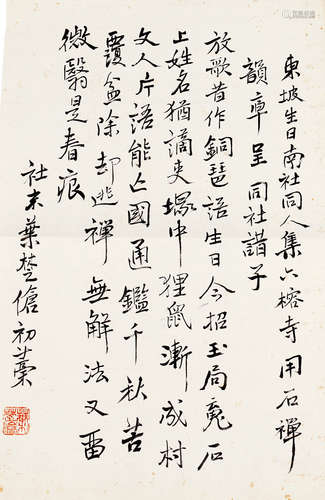 東坡生日南社同人集六榕寺用石禪
韻率呈 同社諸子
放歌昔作銅琶語生日今招玉局魂石
上姓名猶謫吏塚中狸鼠漸成村
文人片語能亡國通鑑千秋苦
覆盆除却逃禪無解法又留
微翳是春痕
社末葉楚傖初藁